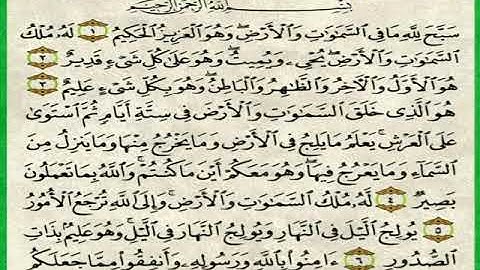 بِسْمِ اللَّهِ الرَّحْمَٰنِ الرَّحِيمِ
سَبَّحَ لِلَّهِ مَا فِي السَّمَٰوَٰتِ وَالْأَرْضِ ۖ وَهُوَ الْعَزِيزُ الْحَكِيمُ ١ لَهُ مُلْكُ
السَّمَٰوَٰتِ وَالْأَرْضِ ۖ يُحْيِي وَيُمِيتُ ۖ وَهُوَ عَلَىٰ كُلِّ شَيْءٍ قَدِيرٌ ٢
هُوَ الْأَوَّلُ وَالْآخِرُ وَالظَّٰهِرُ وَالْبَاطِنُ ۖ وَهُوَ بِكُلِّ شَيْءٍ عَلِيمٌ ٣
هُوَ الَّذِي خَلَقَ السَّمَٰوَٰتِ وَالْأَرْضَ فِي سِتَّةِ أَيَّامٍ ثُمَّ اسْتَوَىٰ
عَلَى الْعَرْشِ ۚ يَعْلَمُ مَا يَلِجُ فِي الْأَرْضِ وَمَا يَخْرُجُ مِنْهَا وَمَا يَنزِلُ مِنَ
السَّمَاءِ وَمَا يَعْرُجُ فِيهَا ۖ وَهُوَ مَعَكُمْ أَيْنَ مَا كُنتُمْ ۚ وَاللَّهُ بِمَا تَعْمَلُونَ
بَصِيرٌ ٤ لَّهُ مُلْكُ السَّمَٰوَٰتِ وَالْأَرْضِ ۚ وَإِلَى اللَّهِ تُرْجَعُ الْأُمُورُ
٥ يُولِجُ الَّيْلَ فِي النَّهَارِ وَيُولِجُ النَّهَارَ فِي الَّيْلِ ۚ وَهُوَ عَلِيمٌ بِذَاتِ
الصُّدُورِ ٦ ءَامِنُوا بِاللَّهِ وَرَسُولِهِ وَأَنفِقُوا مِمَّا جَعَلَكُم